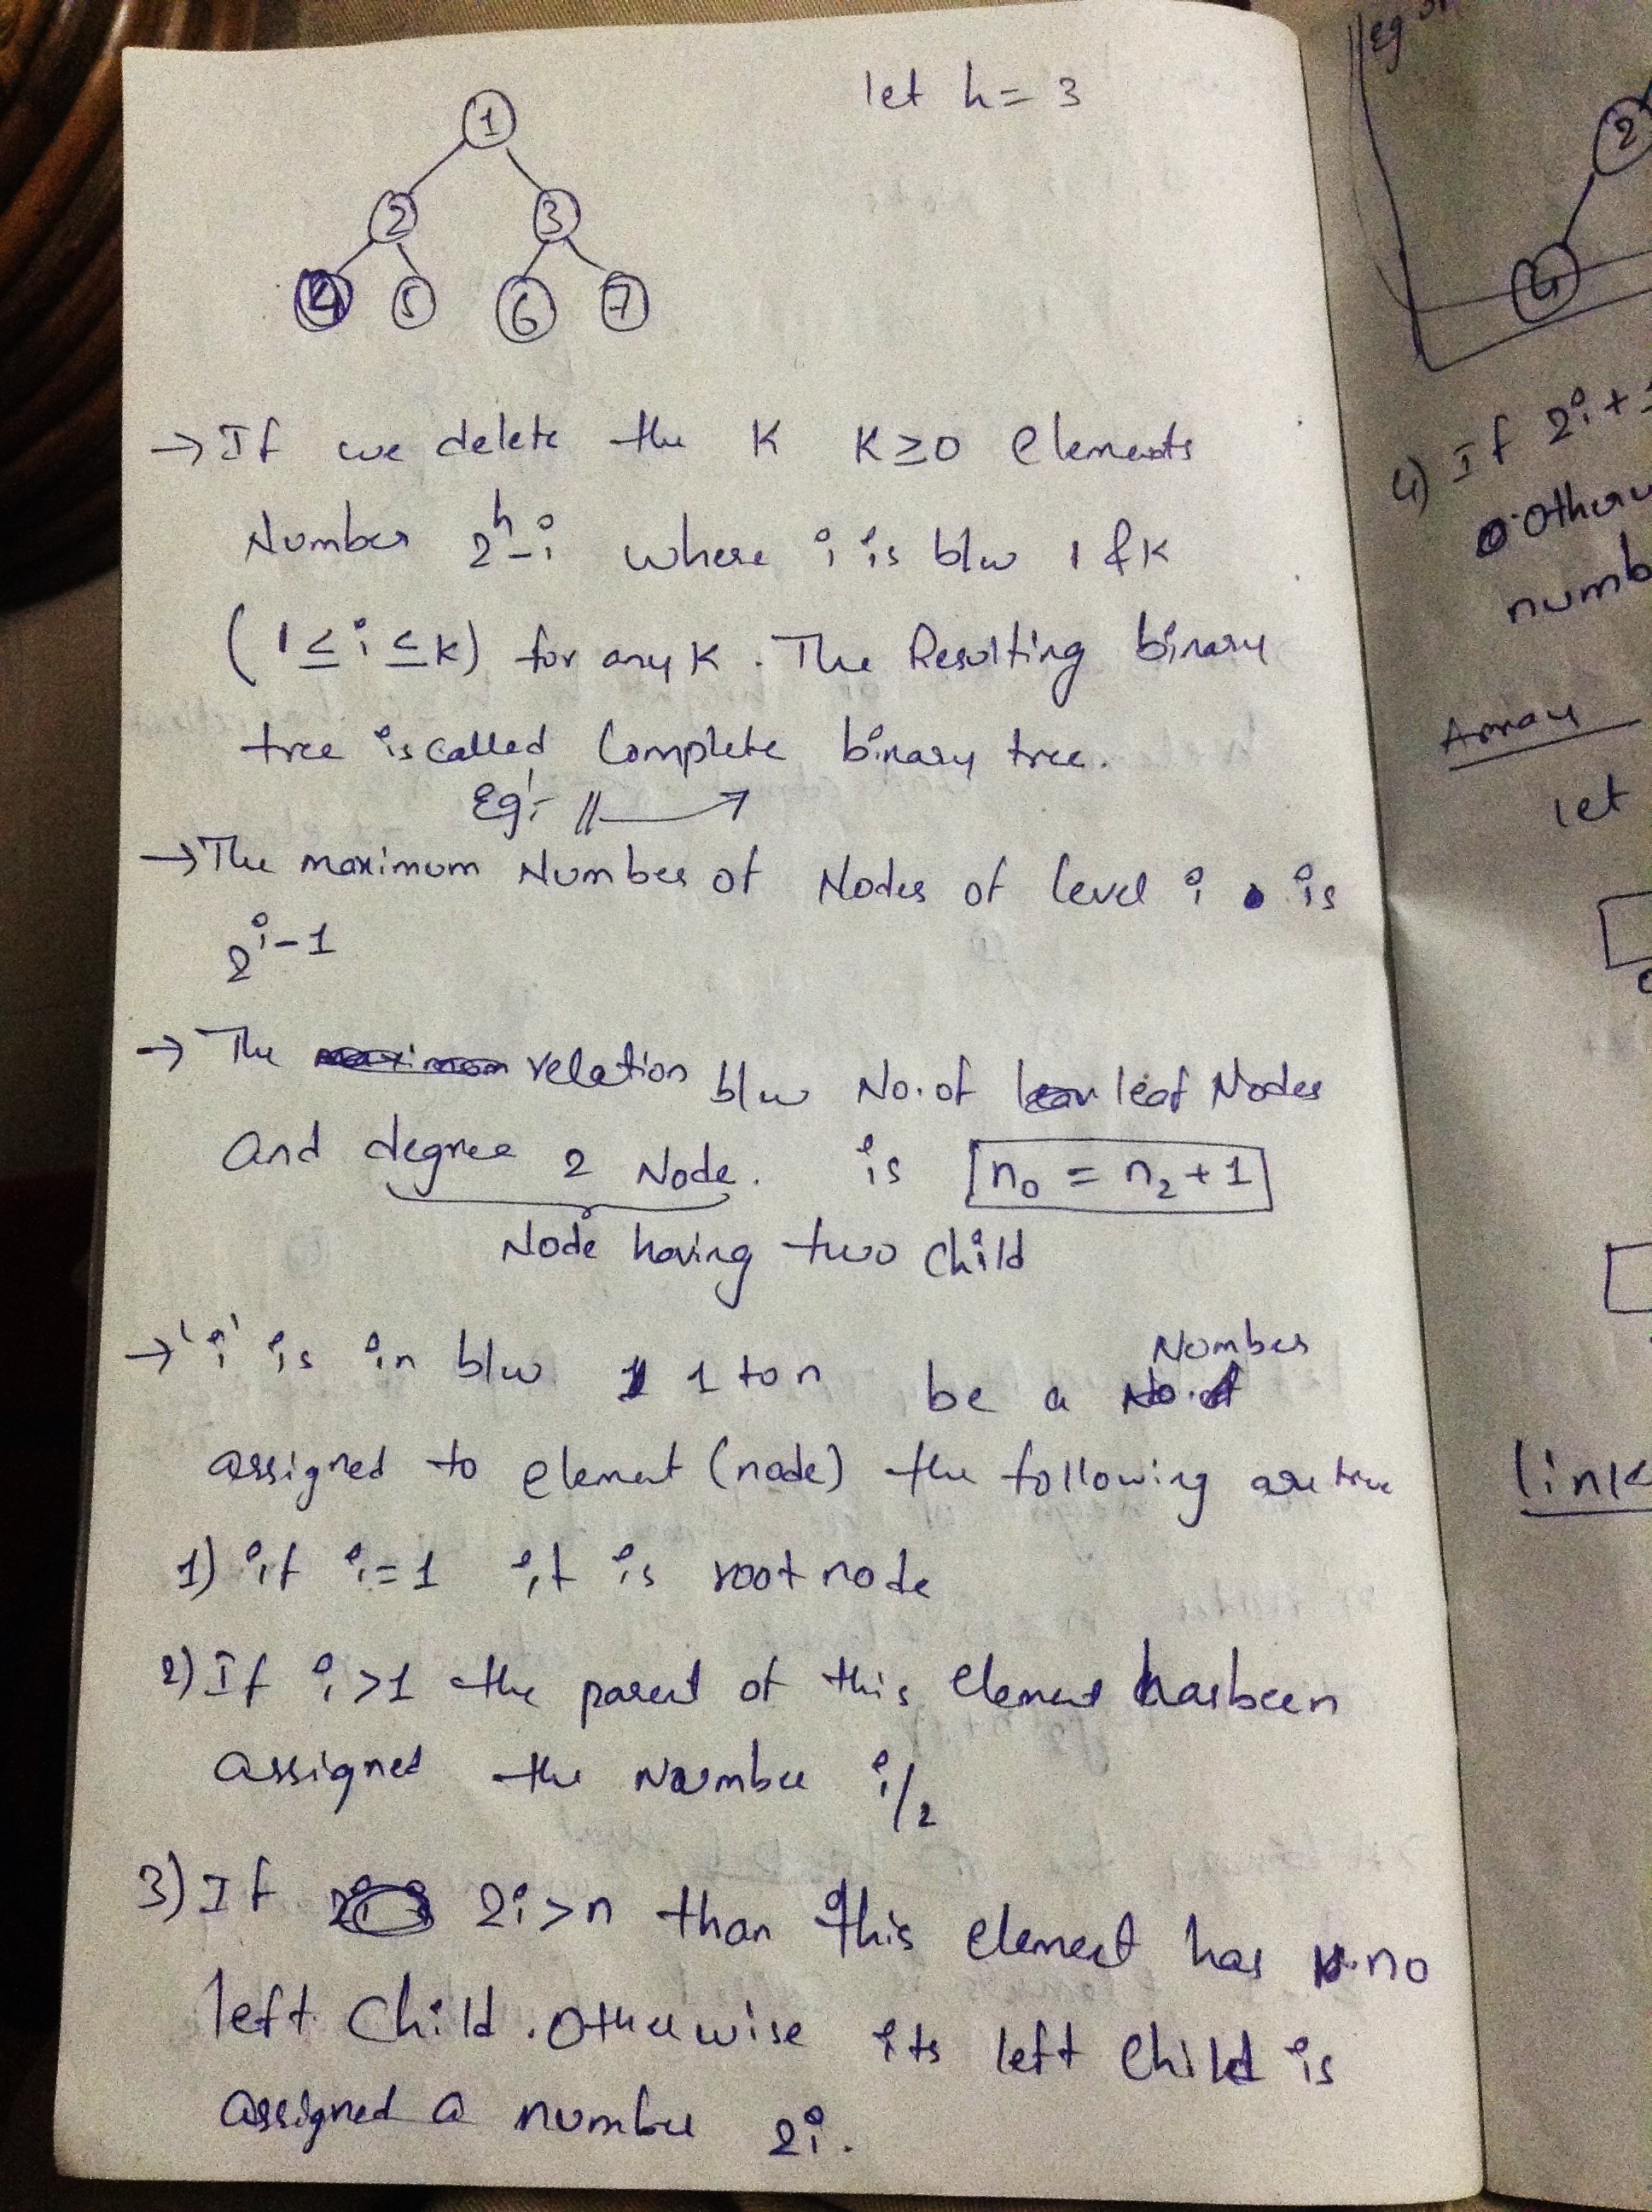 let h = 3
1
2 3
4 5 6 7
→ If we delete the K K ≥ 0 elements
Number 2^h - i where i is b/w 1 & K
(1 ≤ i ≤ K) for any K. The Resulting binary
tree is called Complete binary tree.
Eg:- // →
→ The maximum Number of Nodes of level i is
2^i-1
→ The relation b/w No. of leaf Nodes
And degree 2 Node. is n₀ = n₂ + 1
Node having two child
→ 'i' is in b/w 1 to n be a Number
assigned to element (node) the following are true
1) if i = 1 it is root node
2) If i > 1 the parent of this element has been
assigned the Number i/2
3) If 2i > n than this element has no
left child. Otherwise its left child is
assigned a number 2i.
Eg
2
4
4) If 2i +
numb
Array
let
link